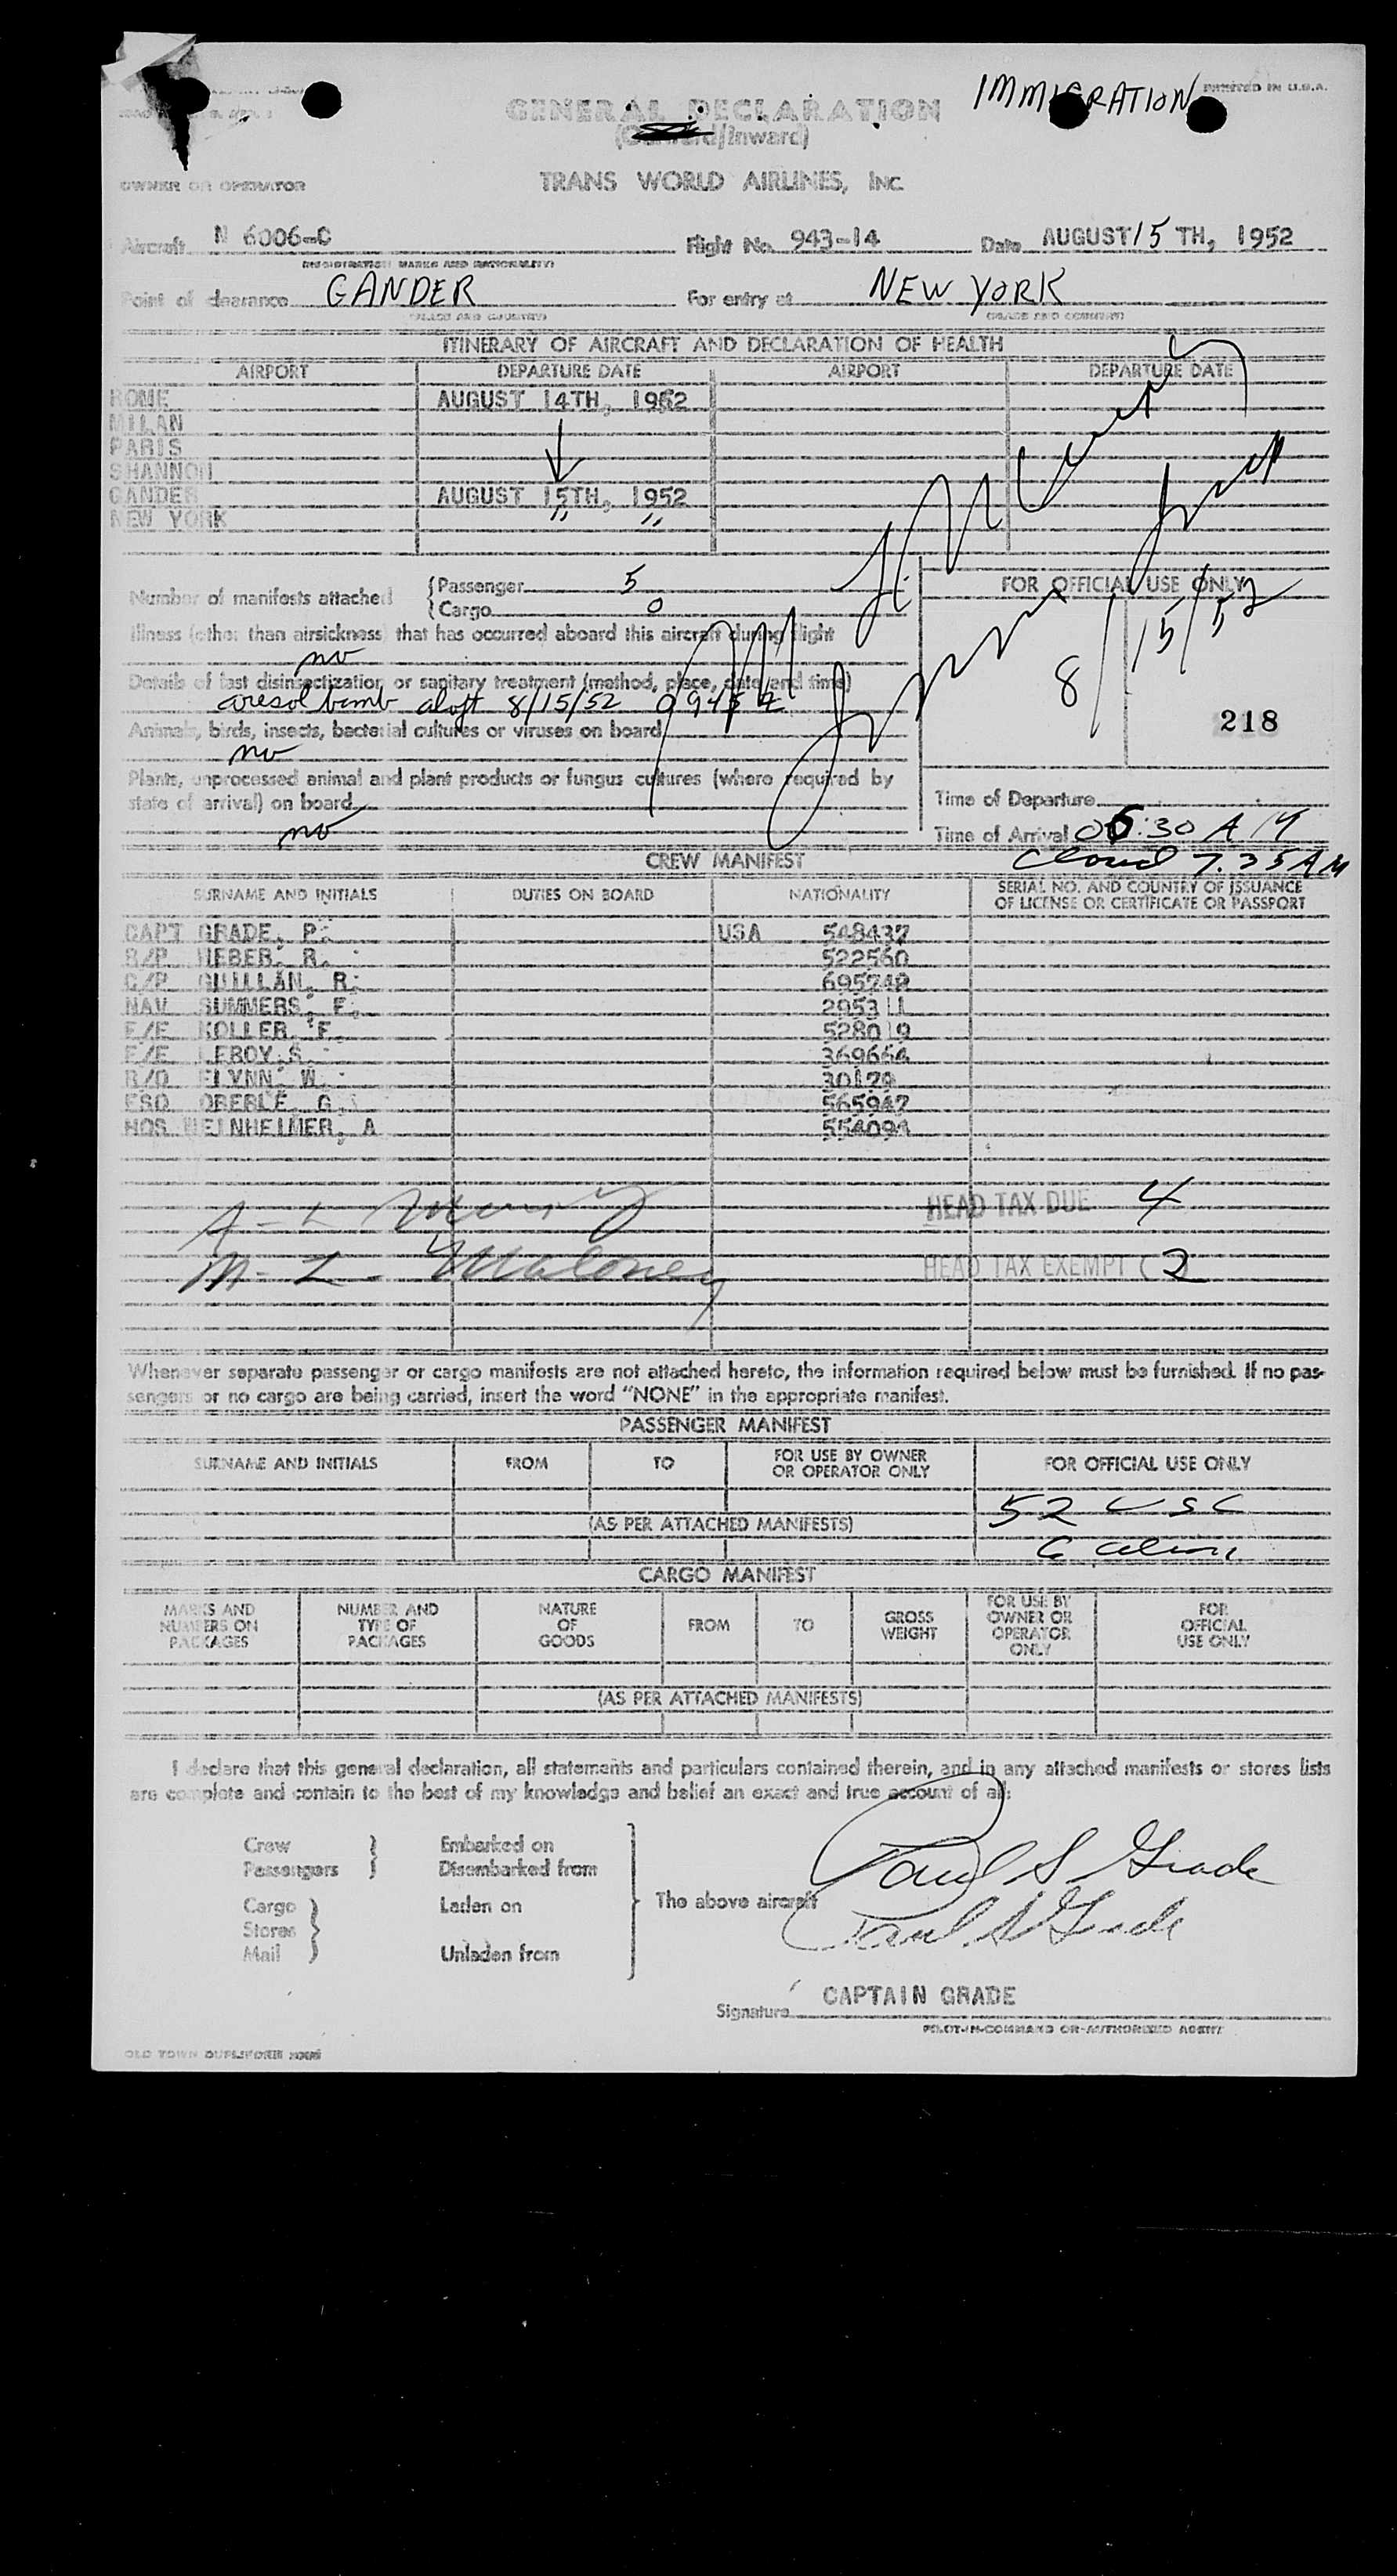 IMMIGRATION
PRINTED IN U.S.A.
GENERAL DECLARATION
(Outward/Inward)
OWNER OR OPERATOR
TRANS WORLD AIRLINES, INC.
Aircraft N 6006-C Flight No. 943-14 Date AUGUST 15 TH, 1952
(REGISTRATION MARKS AND NATIONALITY)
Point of clearance GANDER For entry at NEW YORK
(PLACE AND COUNTRY) (PLACE AND COUNTRY)
ITINERARY OF AIRCRAFT AND DECLARATION OF HEALTH
AIRPORT DEPARTURE DATE AIRPORT DEPARTURE DATE
ROME AUGUST 14TH, 1952
MILAN
PARIS
SHANNON
GANDER AUGUST 15TH, 1952
NEW YORK " "
Number of manifests attached {Passenger 5
{Cargo 0
FOR OFFICIAL USE ONLY
8/15/52
Illness (other than airsickness) that has occurred aboard this aircraft during flight
no
Details of last disinsectization or sanitary treatment (method, place, date and time)
aresol bomb aloft 8/15/52 0945 Z
Animals, birds, insects, bacterial cultures or viruses on board
no
218
Plants, unprocessed animal and plant products or fungus cultures (where required by
state of arrival) on board
no
Time of Departure
Time of Arrival 06:30 AM
7.35 AM
CREW MANIFEST
SURNAME AND INITIALS DUTIES ON BOARD NATIONALITY SERIAL NO. AND COUNTRY OF ISSUANCE
OF LICENSE OR CERTIFICATE OR PASSPORT
CAPT GRADE, P. USA 548437
HEBER, R. 522560
R.
NAV SUMMERS, F. 295311
F/E KOLLER, F. 528019
F/E LEROY, S. 369664
R/O FLYNN, W.
OBERLE, G. 565947
HOS WEINHEIMER, A 554094
HEAD TAX DUE 4
M. L. Maloney
HEAD TAX EXEMPT (2)
Whenever separate passenger or cargo manifests are not attached hereto, the information required below must be furnished. If no pas-
sengers or no cargo are being carried, insert the word "NONE" in the appropriate manifest.
PASSENGER MANIFEST
SURNAME AND INITIALS FROM TO FOR USE BY OWNER
OR OPERATOR ONLY FOR OFFICIAL USE ONLY
52 USC
(AS PER ATTACHED MANIFESTS)
6 aliens
CARGO MANIFEST
MARKS AND
NUMBERS ON
PACKAGES NUMBER AND
TYPE OF
PACKAGES NATURE
OF
GOODS FROM TO GROSS
WEIGHT FOR USE BY
OWNER OR
OPERATOR
ONLY FOR
OFFICIAL
USE ONLY
(AS PER ATTACHED MANIFESTS)
I declare that this general declaration, all statements and particulars contained therein, and in any attached manifests or stores lists
are complete and contain to the best of my knowledge and belief an exact and true account of all:
Crew
Passengers } Embarked on
Disembarked from
Cargo
Stores
Mail } Laden on
Unladen from
} The above aircraft
Paul S Grade
Paul S Grade
Signature CAPTAIN GRADE
PILOT-IN-COMMAND OR AUTHORIZED AGENT
OLD TOWN DUPLIFORM